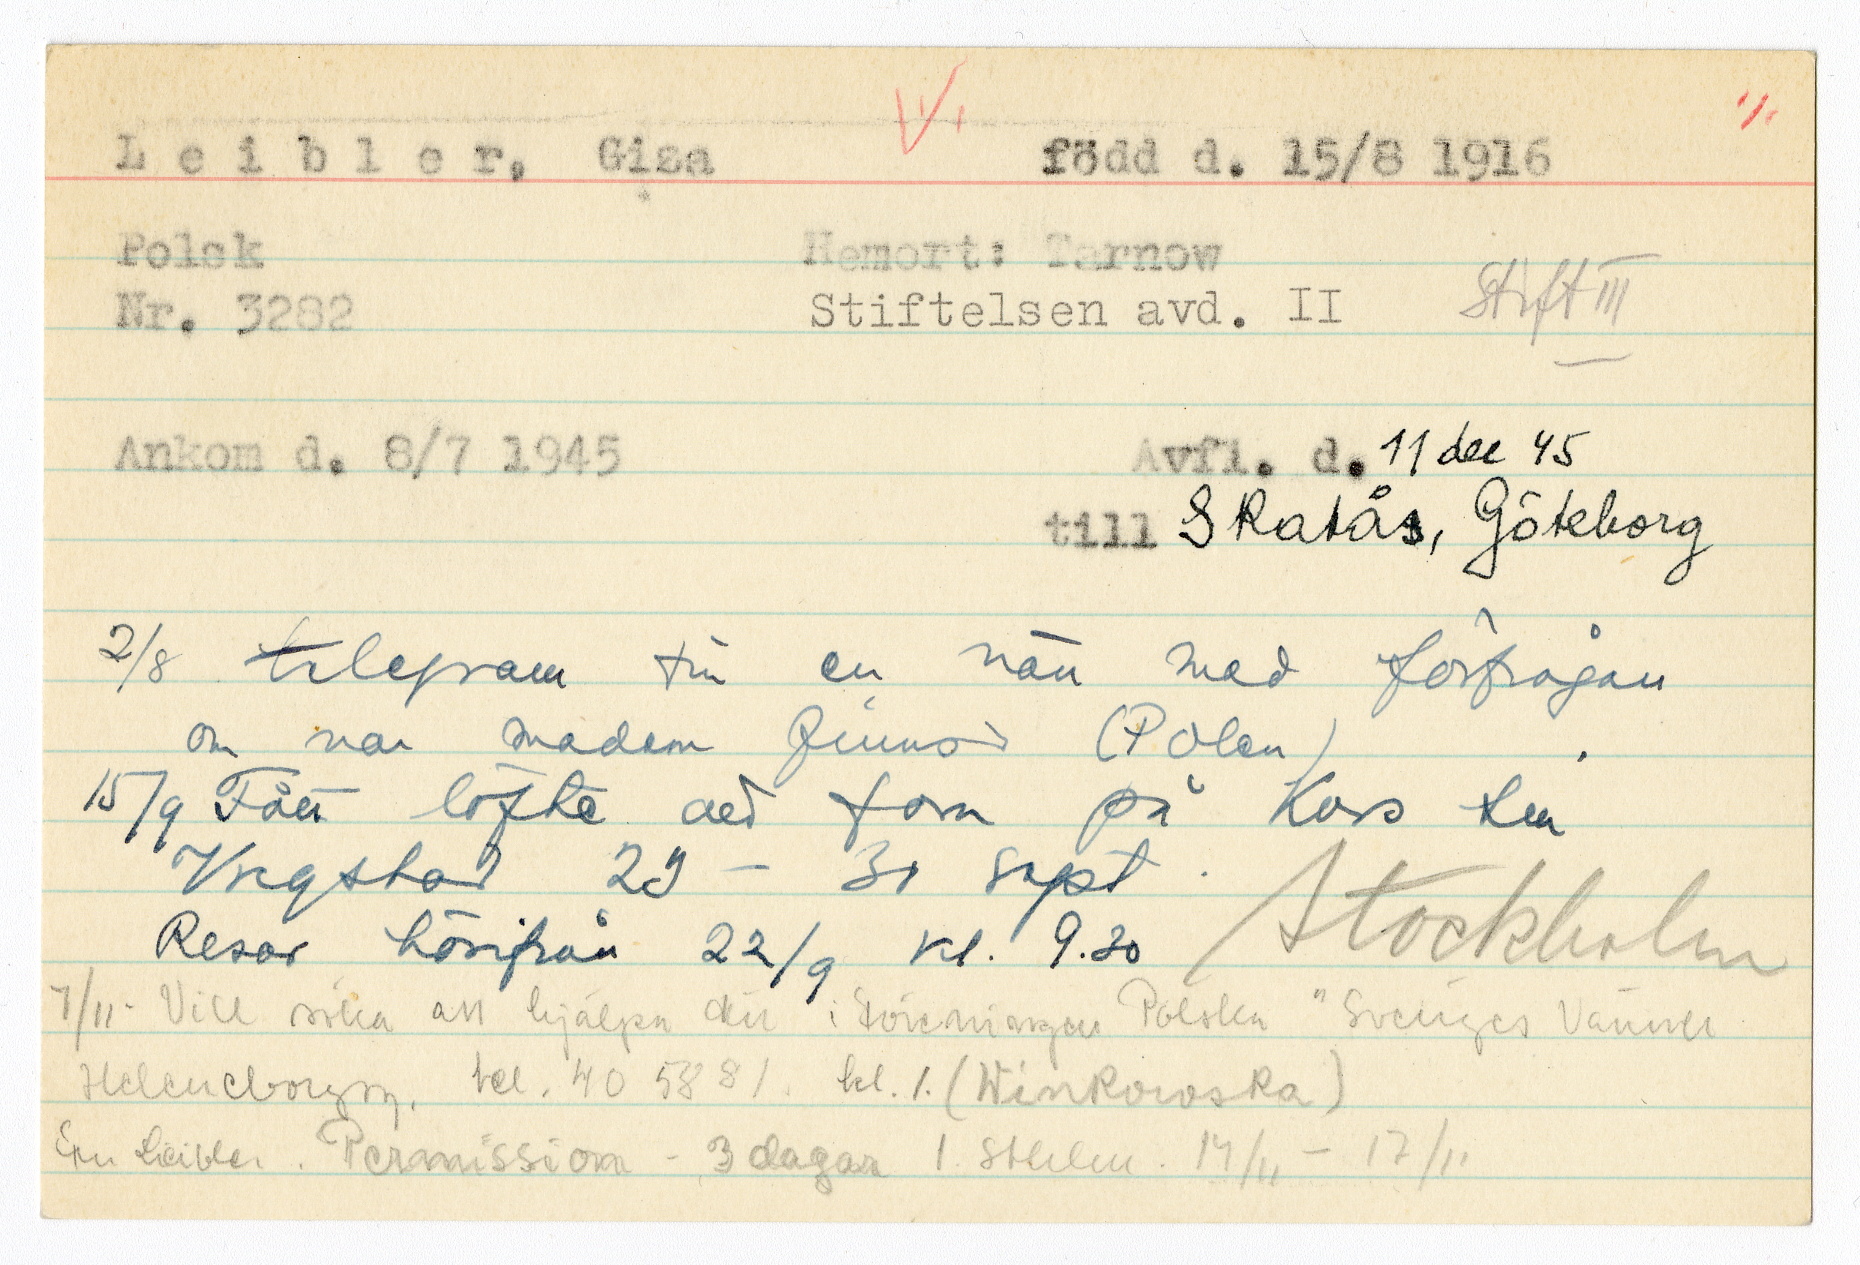 Leibler, Giza född d. 15/8 1916
Polsk Hemort: Tarnow
Nr. 3282 Stiftelsen avd. II Stift III
Ankom d. 8/7 1945 Avfl. d. 11 dec 45
till Skatås, Göteborg
2/8 telegram till en vän med förfrågan
om var madam finns (Polen)
15/9 Fått löfte att fara på kurs
29 - 30 sept.
Resar härifrån 22/9 kl. 9.30 Stockholm
7/11 - Vill söka att hjälpa i föreningen Polska "Sveriges Vänner
tel. 40 58 81. kl. 1. (Winkowska)
Leibler. Permission - 3 dagar i Sthlm. 14/11 - 17/11